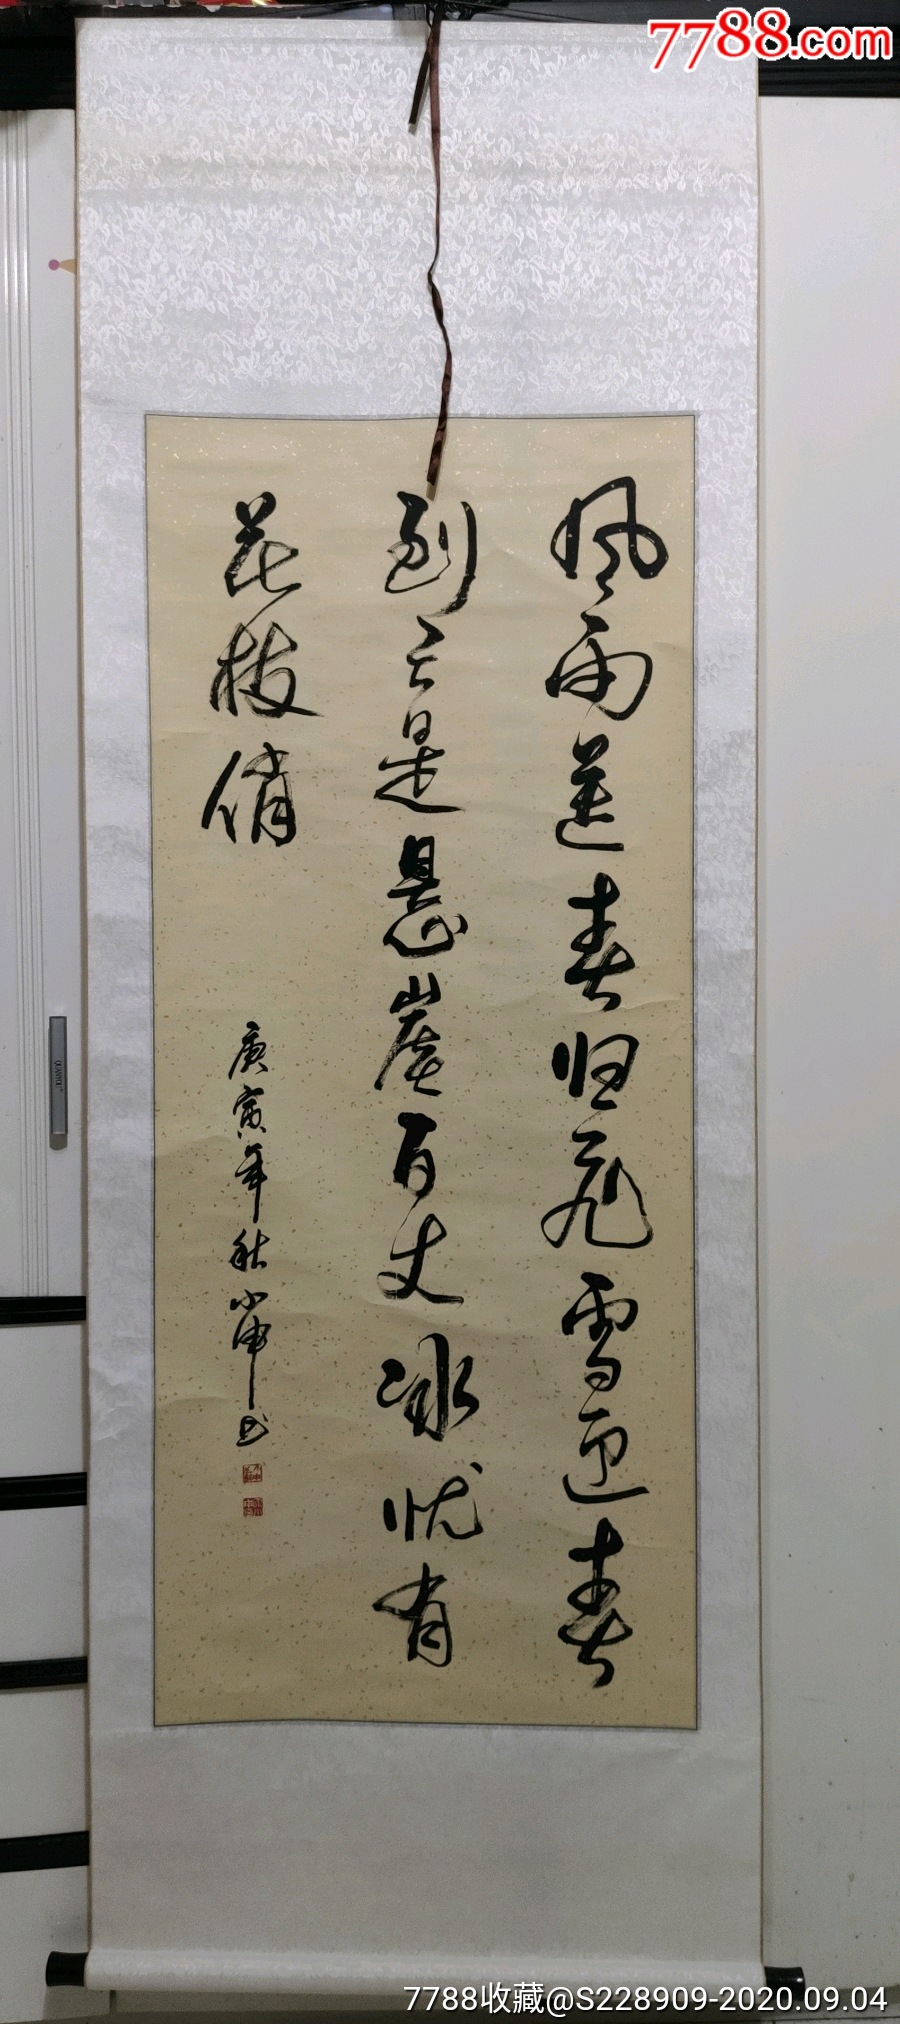 7788.com
风雨送春归飞雪迎春
到已是悬崖百丈冰忧有
花枝俏
庚寅年秋
7788收藏@S228909-2020.09.04